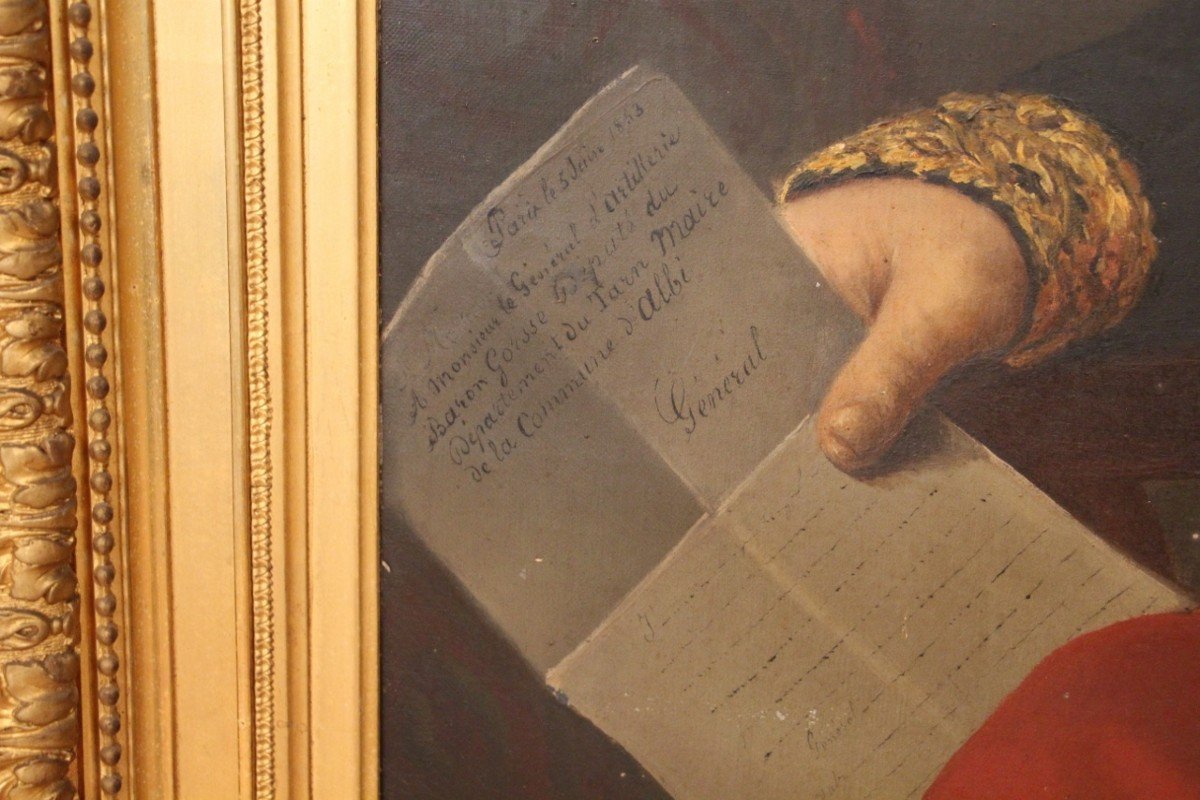 Paris le 5 Juin 1843
A Monsieur le Général d'artillerie
Baron Gorsse Député du
Département du Tarn Maire
de la Commune d'albi
Général
J
Général